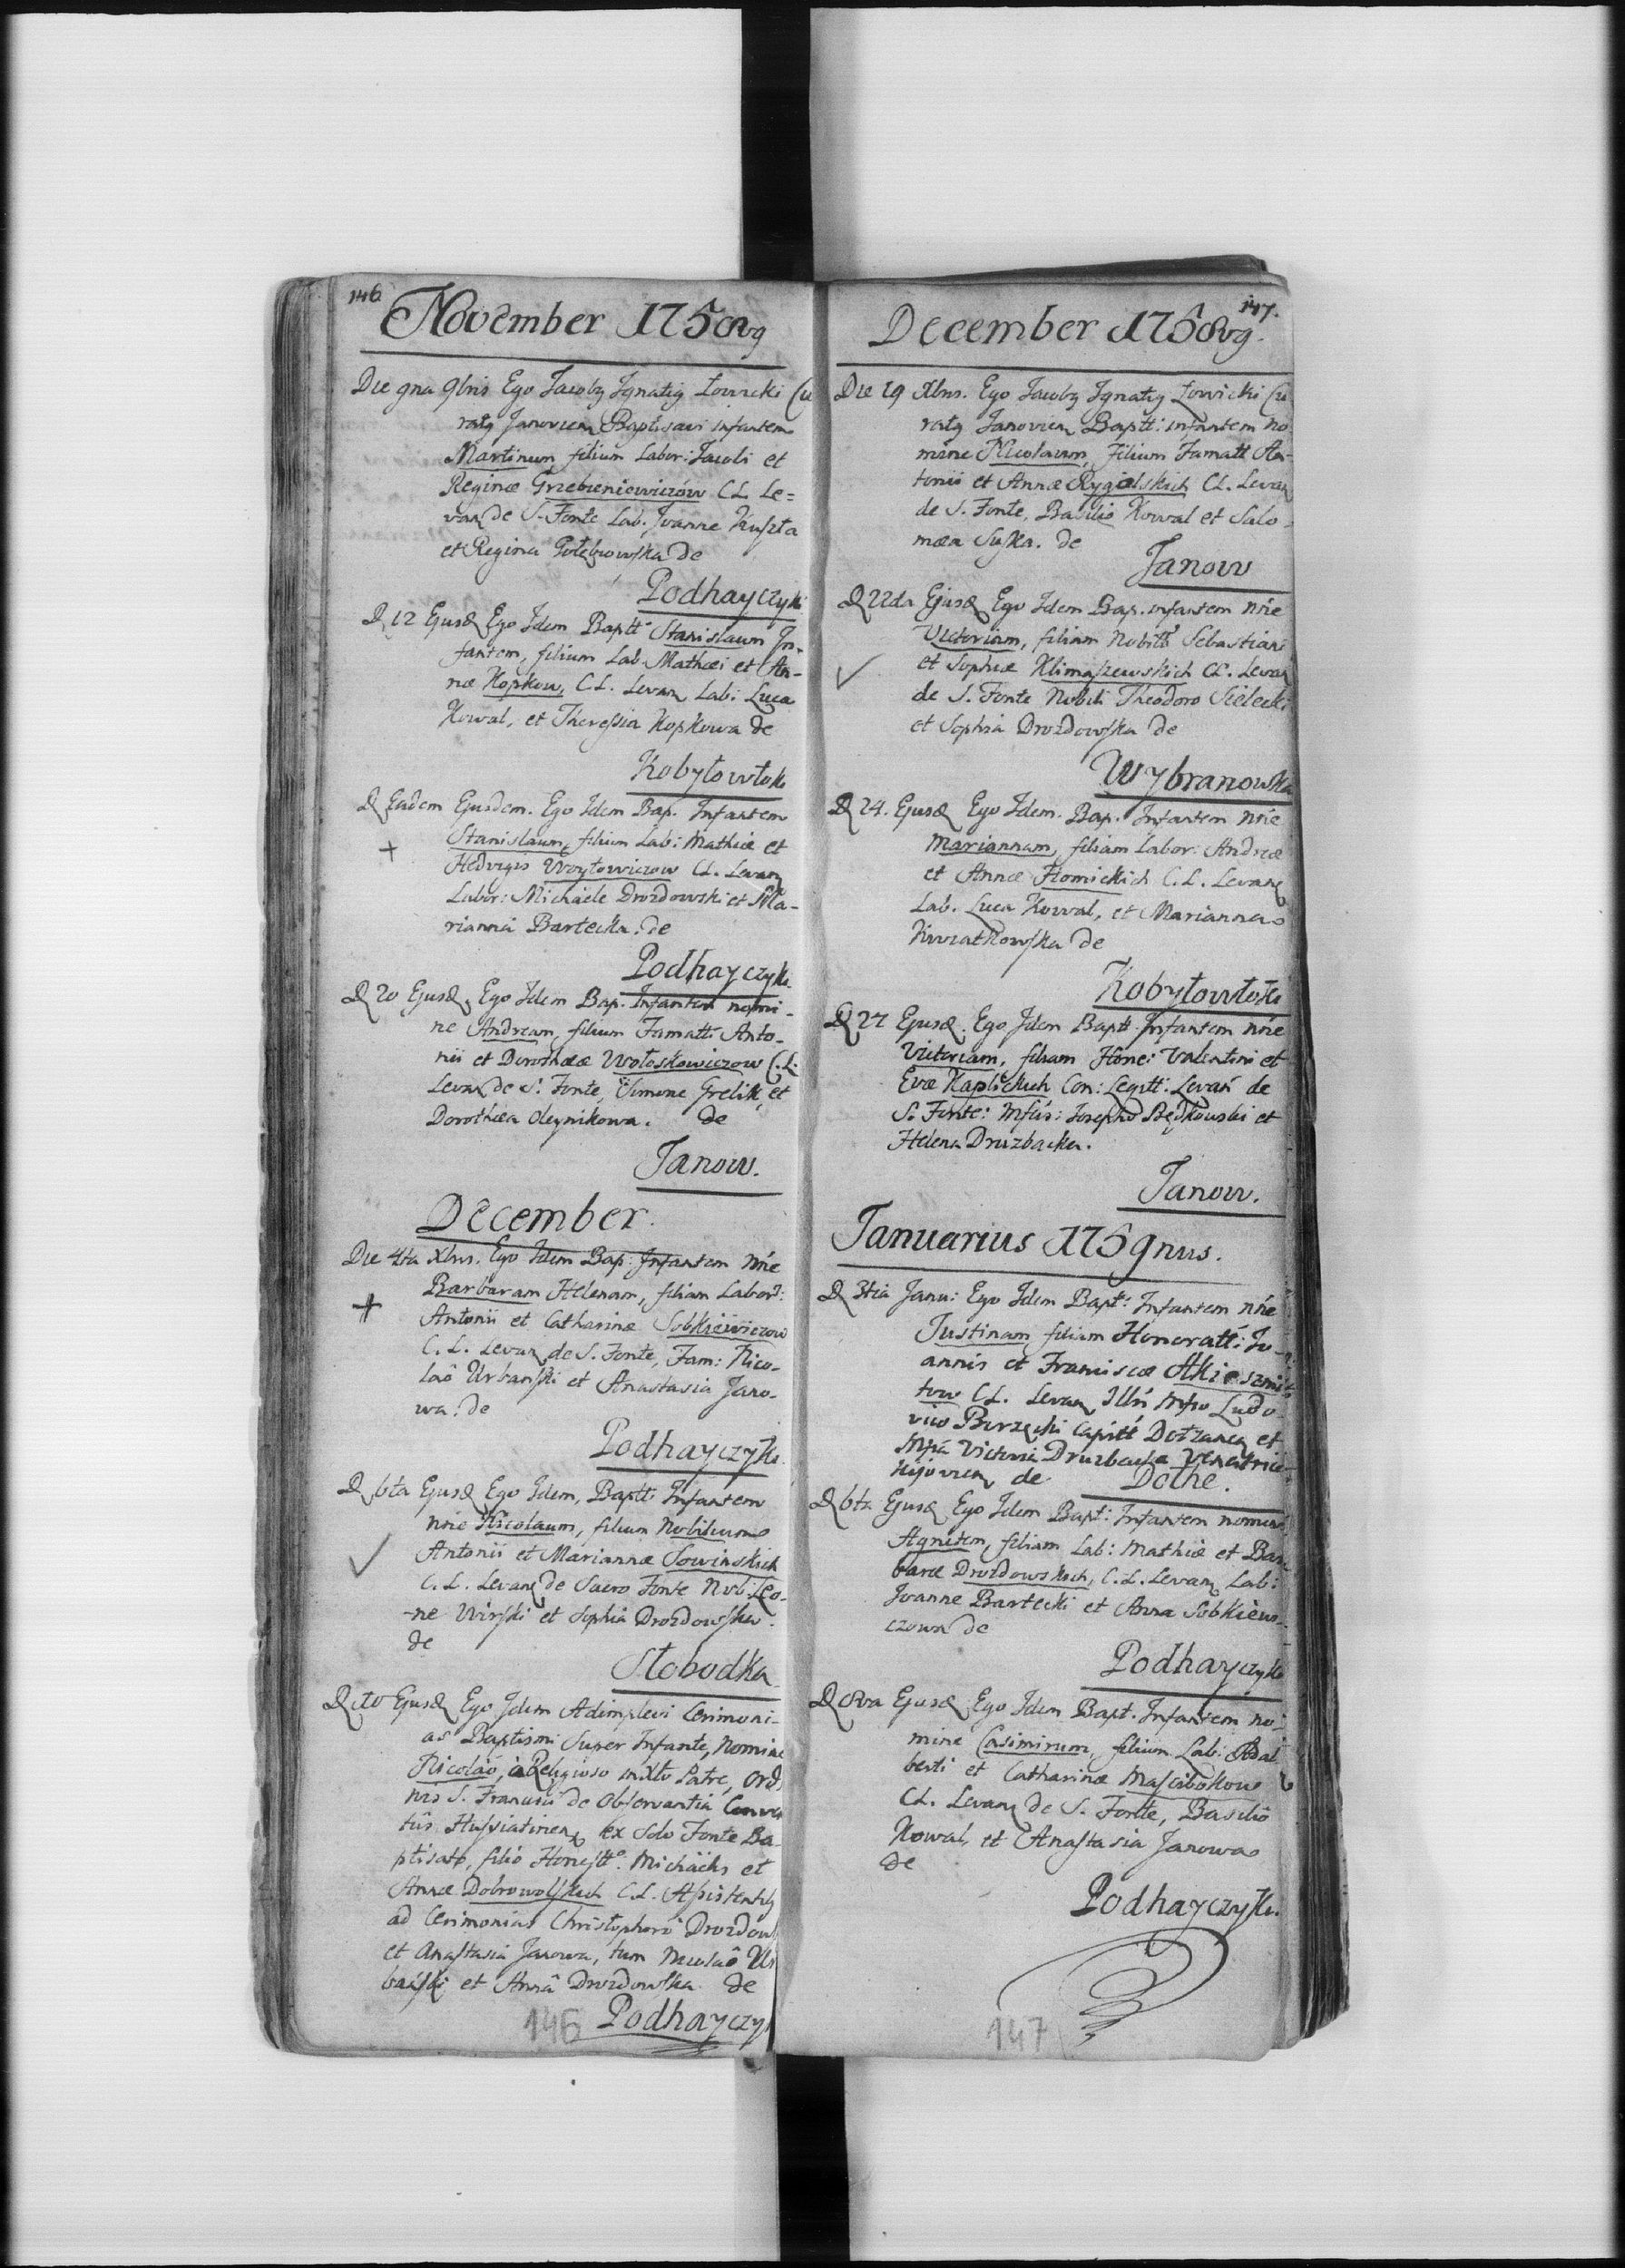 146
November 1758vg
Die 9na 9bris Ego Jacobg Ignatig Łowicki Cu
ratg Janovien Baptisavi infantem
Martinum, filium Labor: Jacobi et
Reginæ Grzebieniewiczów CL Le=
van de S. Fonte Lab. Joanne Kuszta
et Regina Gołębiowska de
Podhayczyki
D 12 Ejusd Ego Idem Baptt Stanislaum In-
fantem, filium Lab. Mathæi et An-
næ Kopkow, C.L. Levan Lab: Luca
Kowal, et Theressia Kopkowa de
Kobyłowłoki
D Eadem Ejusdem. Ego Idem Bap. Infantem
Stanislaum, filium Lab: Mathiæ et
Hedvigis Woytowiczow CL. Levan
Labor: Michaele Drozdowski et Ma-
rianna Bartecka. de
Podhayczyki
D 20 Ejusd. Ego Idem Bap. Infantem nomi-
ne Andream, filium Famatt: Anto-
nii et Dorothææ Wołoskowiczow C.L:
Levan de S. Fonte, Simone Grelik, et
Dorothea Oleynikowa. de
Janow.
December.
Die 4ta Xbris. Ego Idem Bap: Infantem nñe
Barbaram Helenam, filiam Labor:
Antonii et Catharinæ Sobkiewiczow
C. L. Levan de S. Fonte, Fam: Nico-
laô Urbański et Anastasia Jano-
wa. de
Podhayczyki
D 6ta Ejusd Ego Idem, Baptt: Infantem
nñie Nicolaum, filium Nobilium
Antonii et Mariannæ Sowinskich
C. L. Levan de Sacro Fonte Nob: Leo-
ne Wirski et Sophia Drozdowska.
de
Słobodka
D 10 Ejusd Ego Idem Adimplevi Cerimoni-
as Baptismi Super Infante, Nomine
Nicoláô, à Religioso mixto Patre, Ord
nis S. Francisci de Observantia Conven
tûs Hussiatinen ex Solo Fonte Ba
ptisato, filiô Honestt. Michaëlis et
Annæ Dobrowolskich C.L. Assistentib
ad Cerimonias Christophoro Drozdow
et Anastasia Janowa, tum Nicolaô Ur
bański et Annâ Drozdowska de
Podhayczy
146
147.
December 1758vg.
Die 19 Xbris. Ego Jacobg Ignatig Łowicki Cu
ratg Janovien Baptt: infantem no
mine Nicolaum, filium Famatt An-
tonii et Annæ Rygielskich CL. Levan
de S. Fonte, Basilio Kowal et Salo-
mea Suska. de
Janow
D 22da Ejusd Ego Idem Bap. infantem nñie
Victoriam, filiam Nobill Sebastiani
et Sophiæ Klimaszewskich CL. Levan
de S. Fonte Nobili Theodoro Sielecki
et Sophia Drozdowska de
Wybranowka
D 24. Ejusd Ego Idem. Bap. Infantem nñie
Mariannam, filiam Labor: Andreæ
et Annæ Homickich C.L. Levan
Lab. Luca Kowal, et Marianna
Kwiatkowska de
Kobyłowłoki
D 27 Ejusd. Ego Idem Baptt. Infantem nñe
Victoriam, filiam Hone: Valentini et
Evæ Kaplickich Con: Legitt: Levan de
S. Fonte: Josepho Będkowski et
Helena Druzbacka.
Janow.
Januarius 1759nus.
D 3tia Janu: Ego Idem Bapt: Infantem nñe
Justinam, filiam Honoratt: Jo-
annis et Franciscæ
tow CL. Levan Illri Mfco Ludo-
vico Burzęcki Capitt et
Mfcâ Victoria Druzbacka Venatrice
Kijovien de Dołhe.
D 6ta Ejusd Ego Idem Bapt: Infantem nomine
Agnitem, filiam Lab: Mathiæ et Bar
baræ Drozdowskich, C.L. Levan Lab:
Joanne Bartecki et Anna Sobkiewi-
czowa de
Podhayczyki
D 8va Ejusd. Ego Idem Bapt. Infantem no-
mine Casimirum, filium Lab: Adal
berti et Catharinæ Mascibokow
CL. Levan de S. Fonte, Basiliô
Kowal, et Anastasia Janowa
de
Podhayczyki.
147